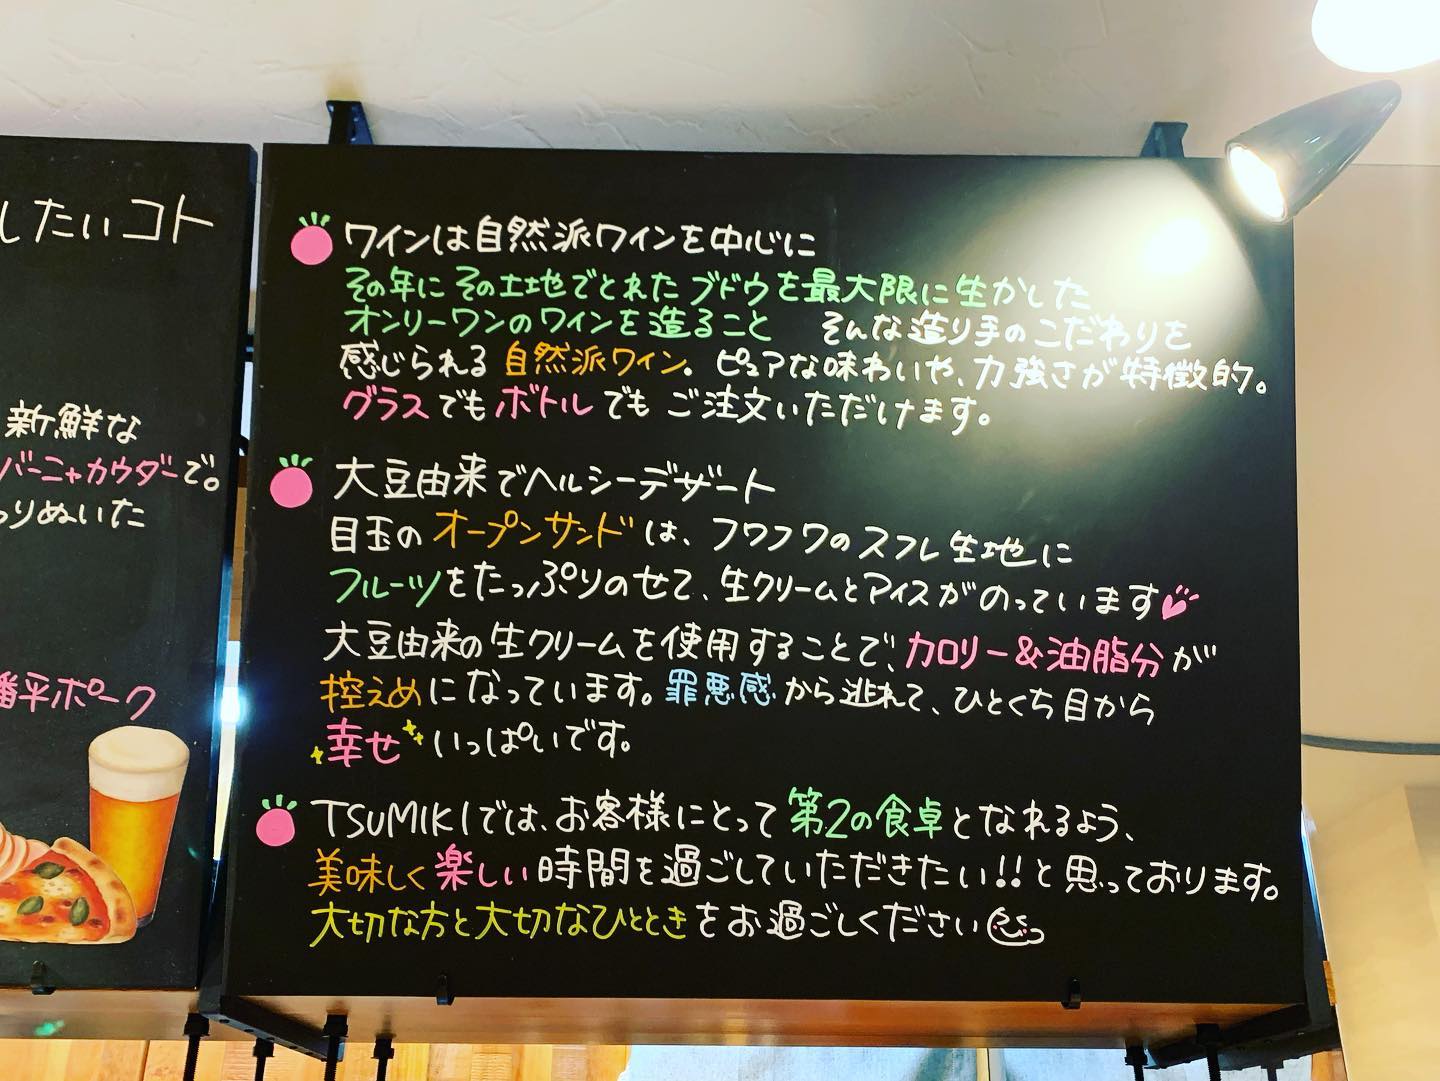 したいコト
新鮮な
バーニャカウダーで。
りぬいた
平ポーク
ワインは自然派ワインを中心に
その年にその土地でとれたブドウを最大限に生かした
オンリーワンのワインを造ること そんな造り手のこだわりを
感じられる自然派ワイン。ピュアな味わいや、力強さが特徴的。
グラスでもボトルでもご注文いただけます。
大豆由来でヘルシーデザート
目玉のオープンサンドは、フワフワのスフレ生地に
フルーツをたっぷりのせて、生クリームとアイスがのっています
大豆由来の生クリームを使用することで、カロリー&油脂分が
控えめになっています。罪悪感から逃れて、ひとくち目から
幸せいっぱいです。
TSUMIKIでは、お客様にとって第2の食卓となれるよう、
美味しく楽しい時間を過ごしていただきたい!!と思っております。
大切な方と大切なひとときをお過ごしください